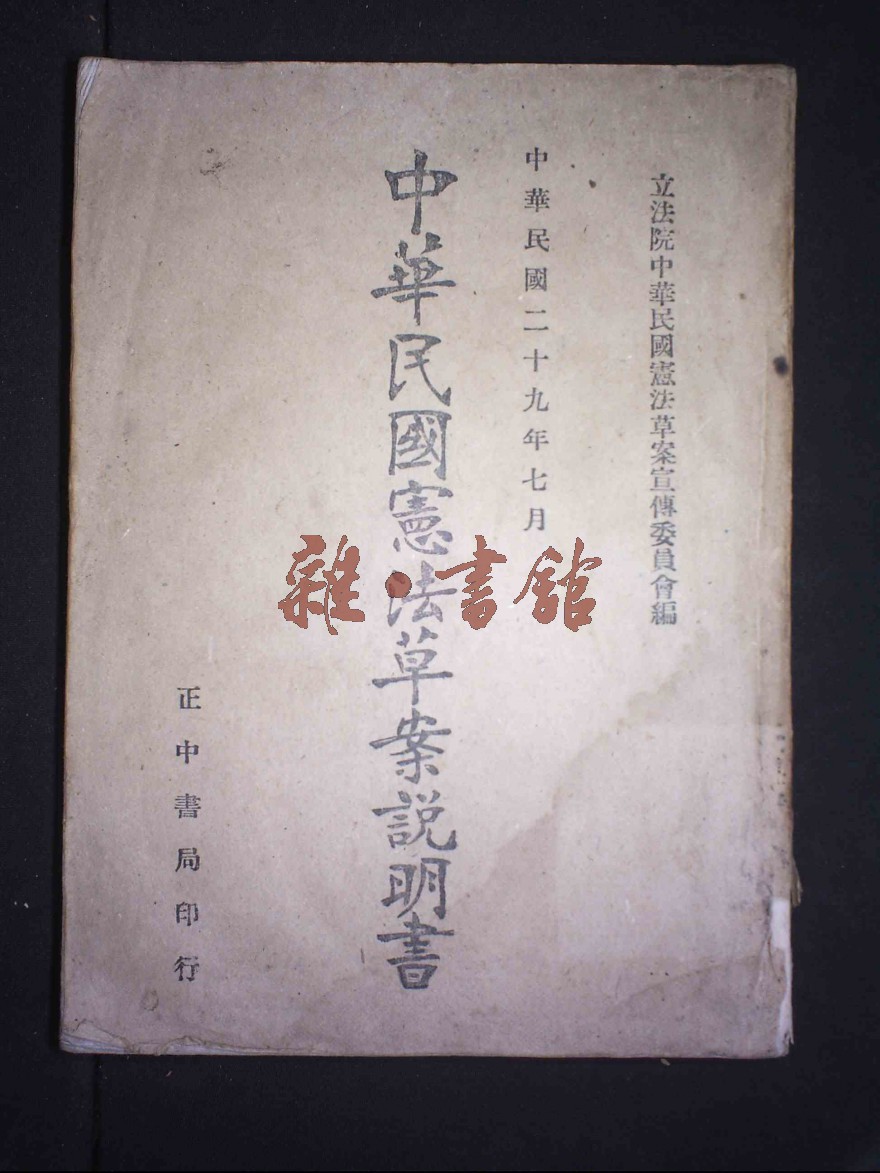 立法院中華民國憲法草案宣傳委員會編
中華民國二十九年七月
中華民國憲法草案説明書
正中書局印行
雜·書館